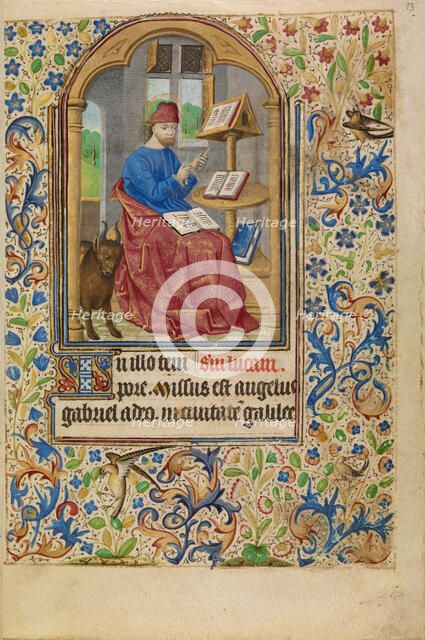 13
Heritage Heritage
Heritage Heritage
C
Heritage Heritage
In illo tem Sm lucam
pore. Missus est angelus
gabriel a deo in ciuitate galilee